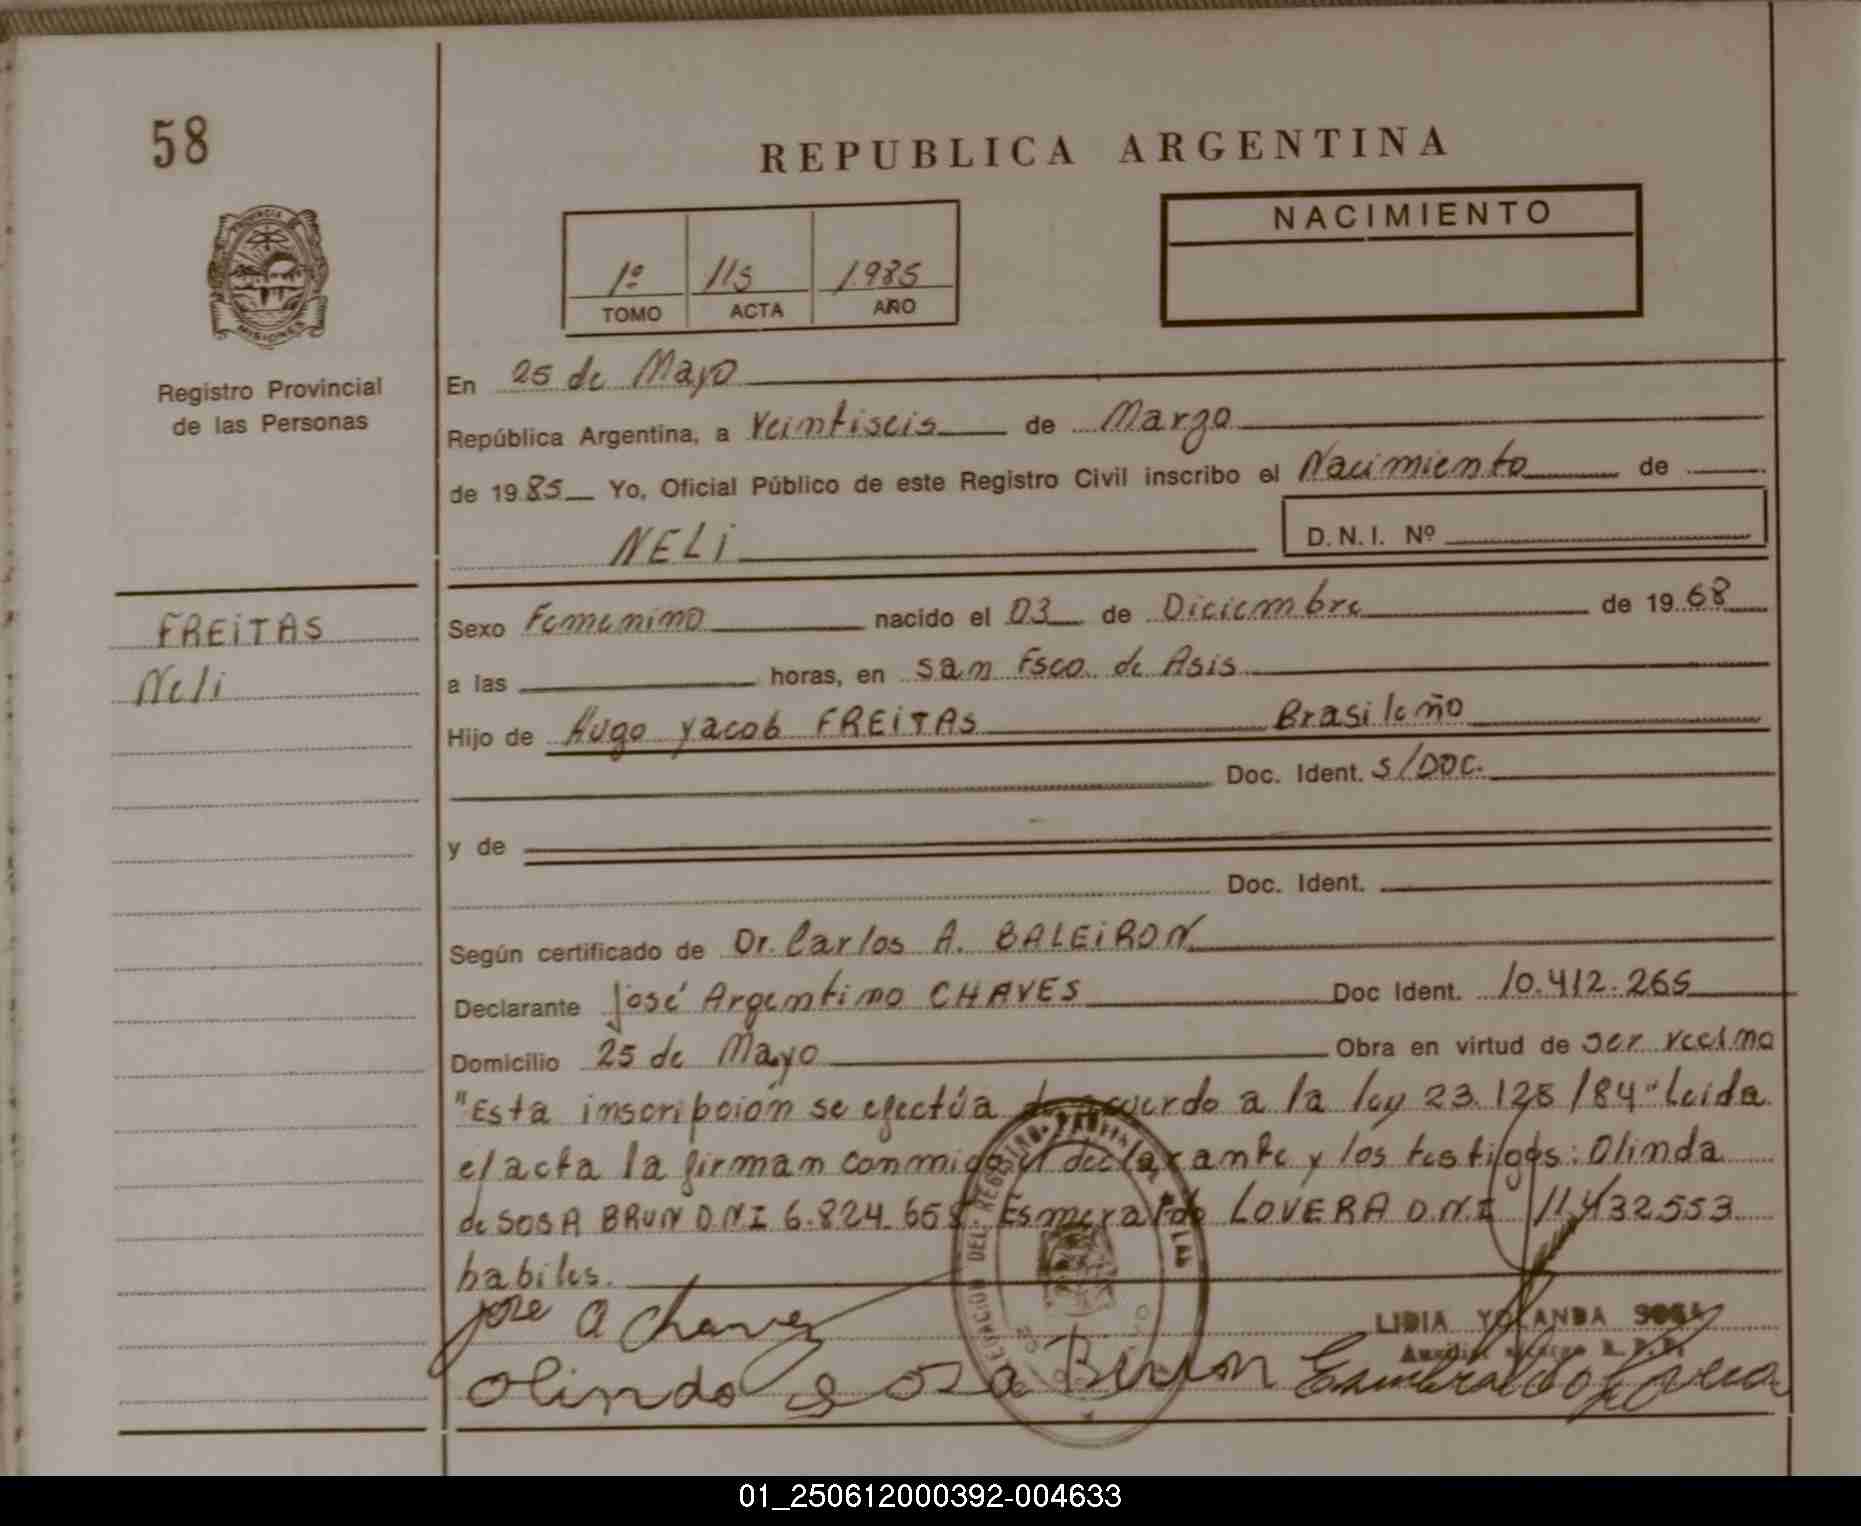 58
REPUBLICA ARGENTINA
NACIMIENTO
1º 115 1.985
TOMO ACTA AÑO
PROVINCIA
MISIONES
Registro Provincial
de las Personas
En 25 de Mayo
República Argentina, a Veintiseis de Marzo
de 1985 Yo, Oficial Público de este Registro Civil inscribo el Nacimiento de
NELI D.N.I. Nº
FREITAS
Neli
Sexo Femenino nacido el 03 de Diciembre de 1968
a las horas, en San Fsco. de Asis
Hijo de Hugo Yacob FREITAS Brasileño
Doc. Ident. S/DOC.
y de
Doc. Ident.
Según certificado de Dr. Carlos A. BALEIRON
Declarante José Argentino CHAVES Doc Ident. 10.412.265
Domicilio 25 de Mayo Obra en virtud de ser vecino
"Esta inscripcion se efectúa de acuerdo a la ley 23.128/84" Leida
el acta la firman conmigo el declarante y los testigos: Olinda
de SOSA BRUN D.N.I 6.824.658. Esmeraldo LOVERA D.N.I 11.432553
habiles.
Jose A Chavez
LIDIA YOLANDA SOSA
Olinda Sosa Brun Esmeraldo Lovera
01_250612000392-004633